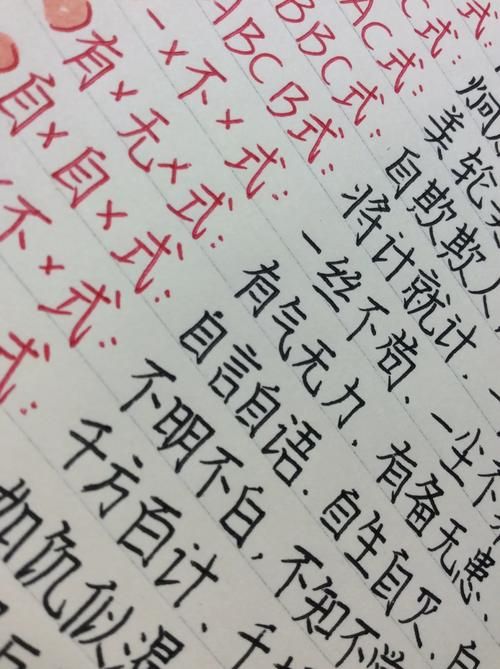 式:
C式: 炯
AC式: 美轮美
BBC式: 自欺欺人
ABCB式: 将计就计.
一×不×式: 一丝不苟、一尘不
有×无×式: 有气无力, 有备无患.
自×自×式: 自言自语. 自生自灭. 自
不×式: 不明不白, 不知不觉
式: 千方百计、千
如饥似渴